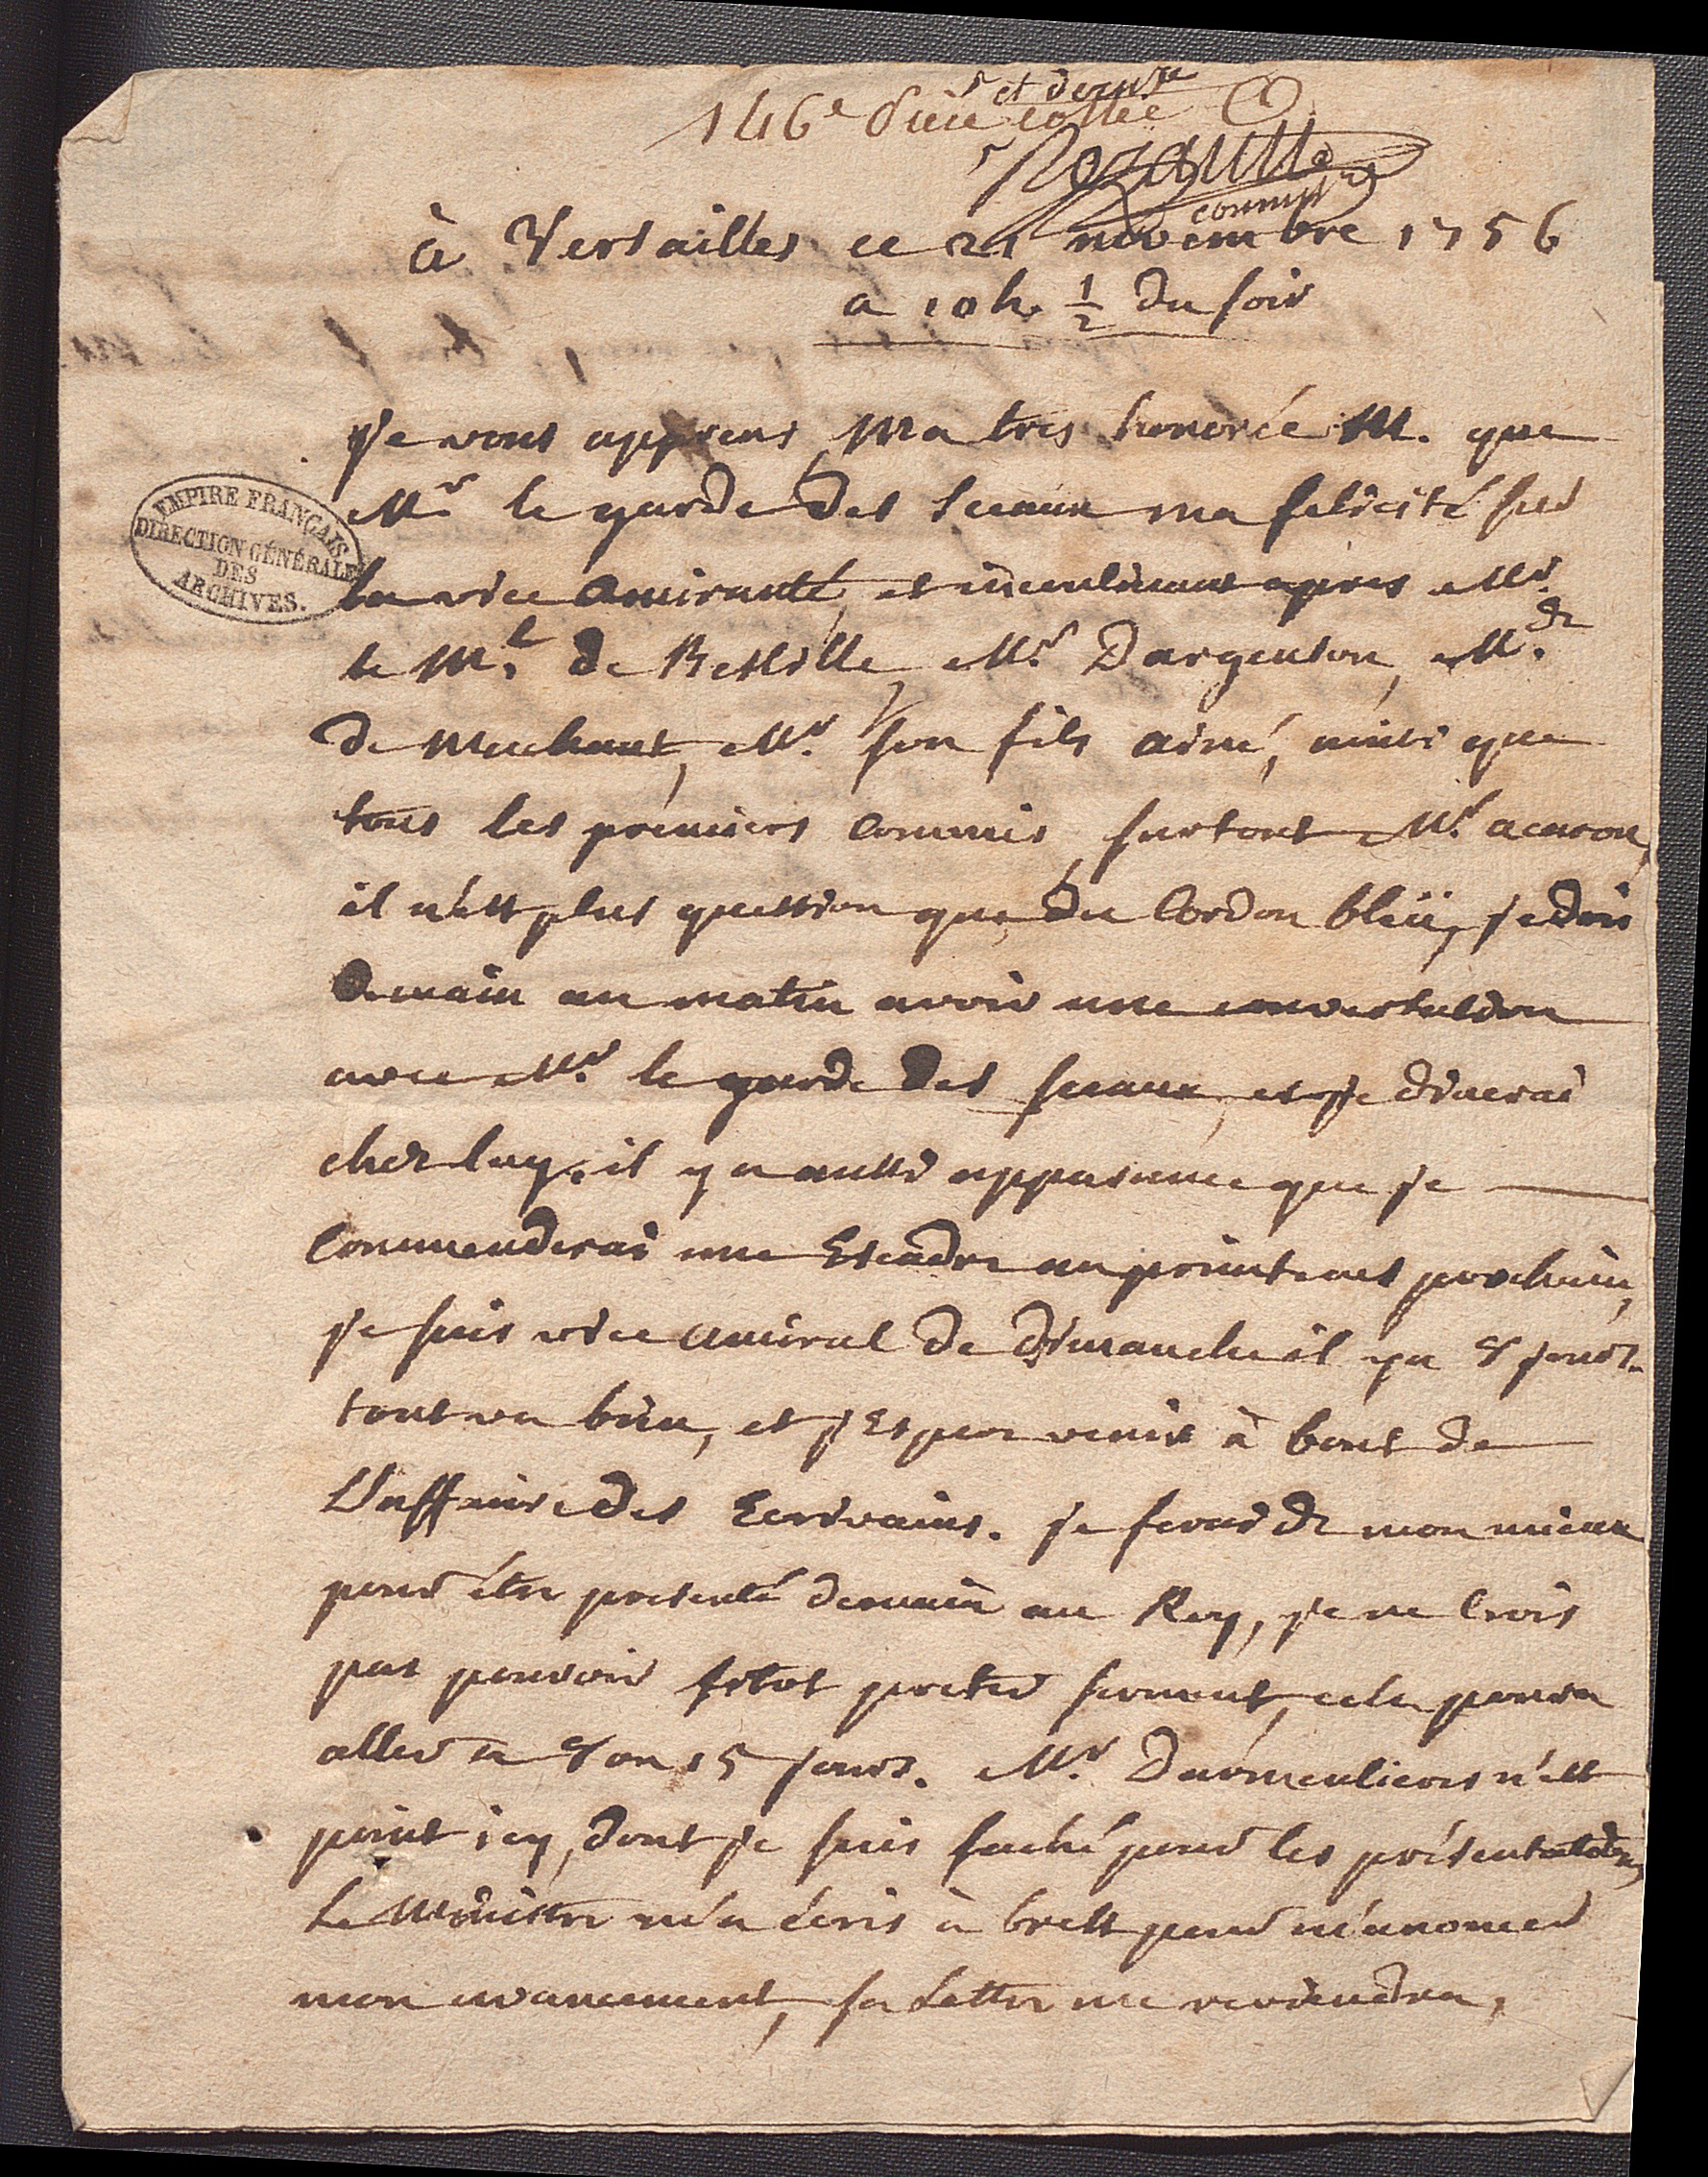 et dernre
146e piece cottée
Rozaulle
commis
à Versailles ce 21 novembre 1756
a 10 h. ½ du soir
je vous apprens, Ma tres honorée M. que
Mr le garde des Sceaux ma felicité sur
la vice amirauté, et incontinent apres Mr.
le Ml. de Bellille, Mr. Dargenson, Mde.
de Machaut, Mr. son fils ainé, ainsi que
tous les premiers Commis, surtout Mr. acaron,
il n'est plus question que du Cordon bleü, je dois
demain au matin avoir une conversation
avec Mr. le garde des sceaux, et je dinerai
chez luy. il y a aussi apparence que je
Commenderai une Escadre au printems prochain,
je suis vice amiral de dimanche il y a 8 jours.
tout va bien, et j'Espere venir à bout de
L'affaire des Ecrivains. je ferai de mon mieux
pour être presenté demain au Roy, je ne Crois
pas pouvoir sitot preter serment, cela pourra
aller a 8 ou 15 jours. Mr. Darmentieres n'est
point icy, dont je suis faché pour les présentations,
Le Ministre m'a écris à brest pour m'anoncer
mon avancement, sa Lettre me reviendra,
EMPIRE FRANÇAIS
DIRECTION GÉNÉRALE
DES
ARCHIVES.